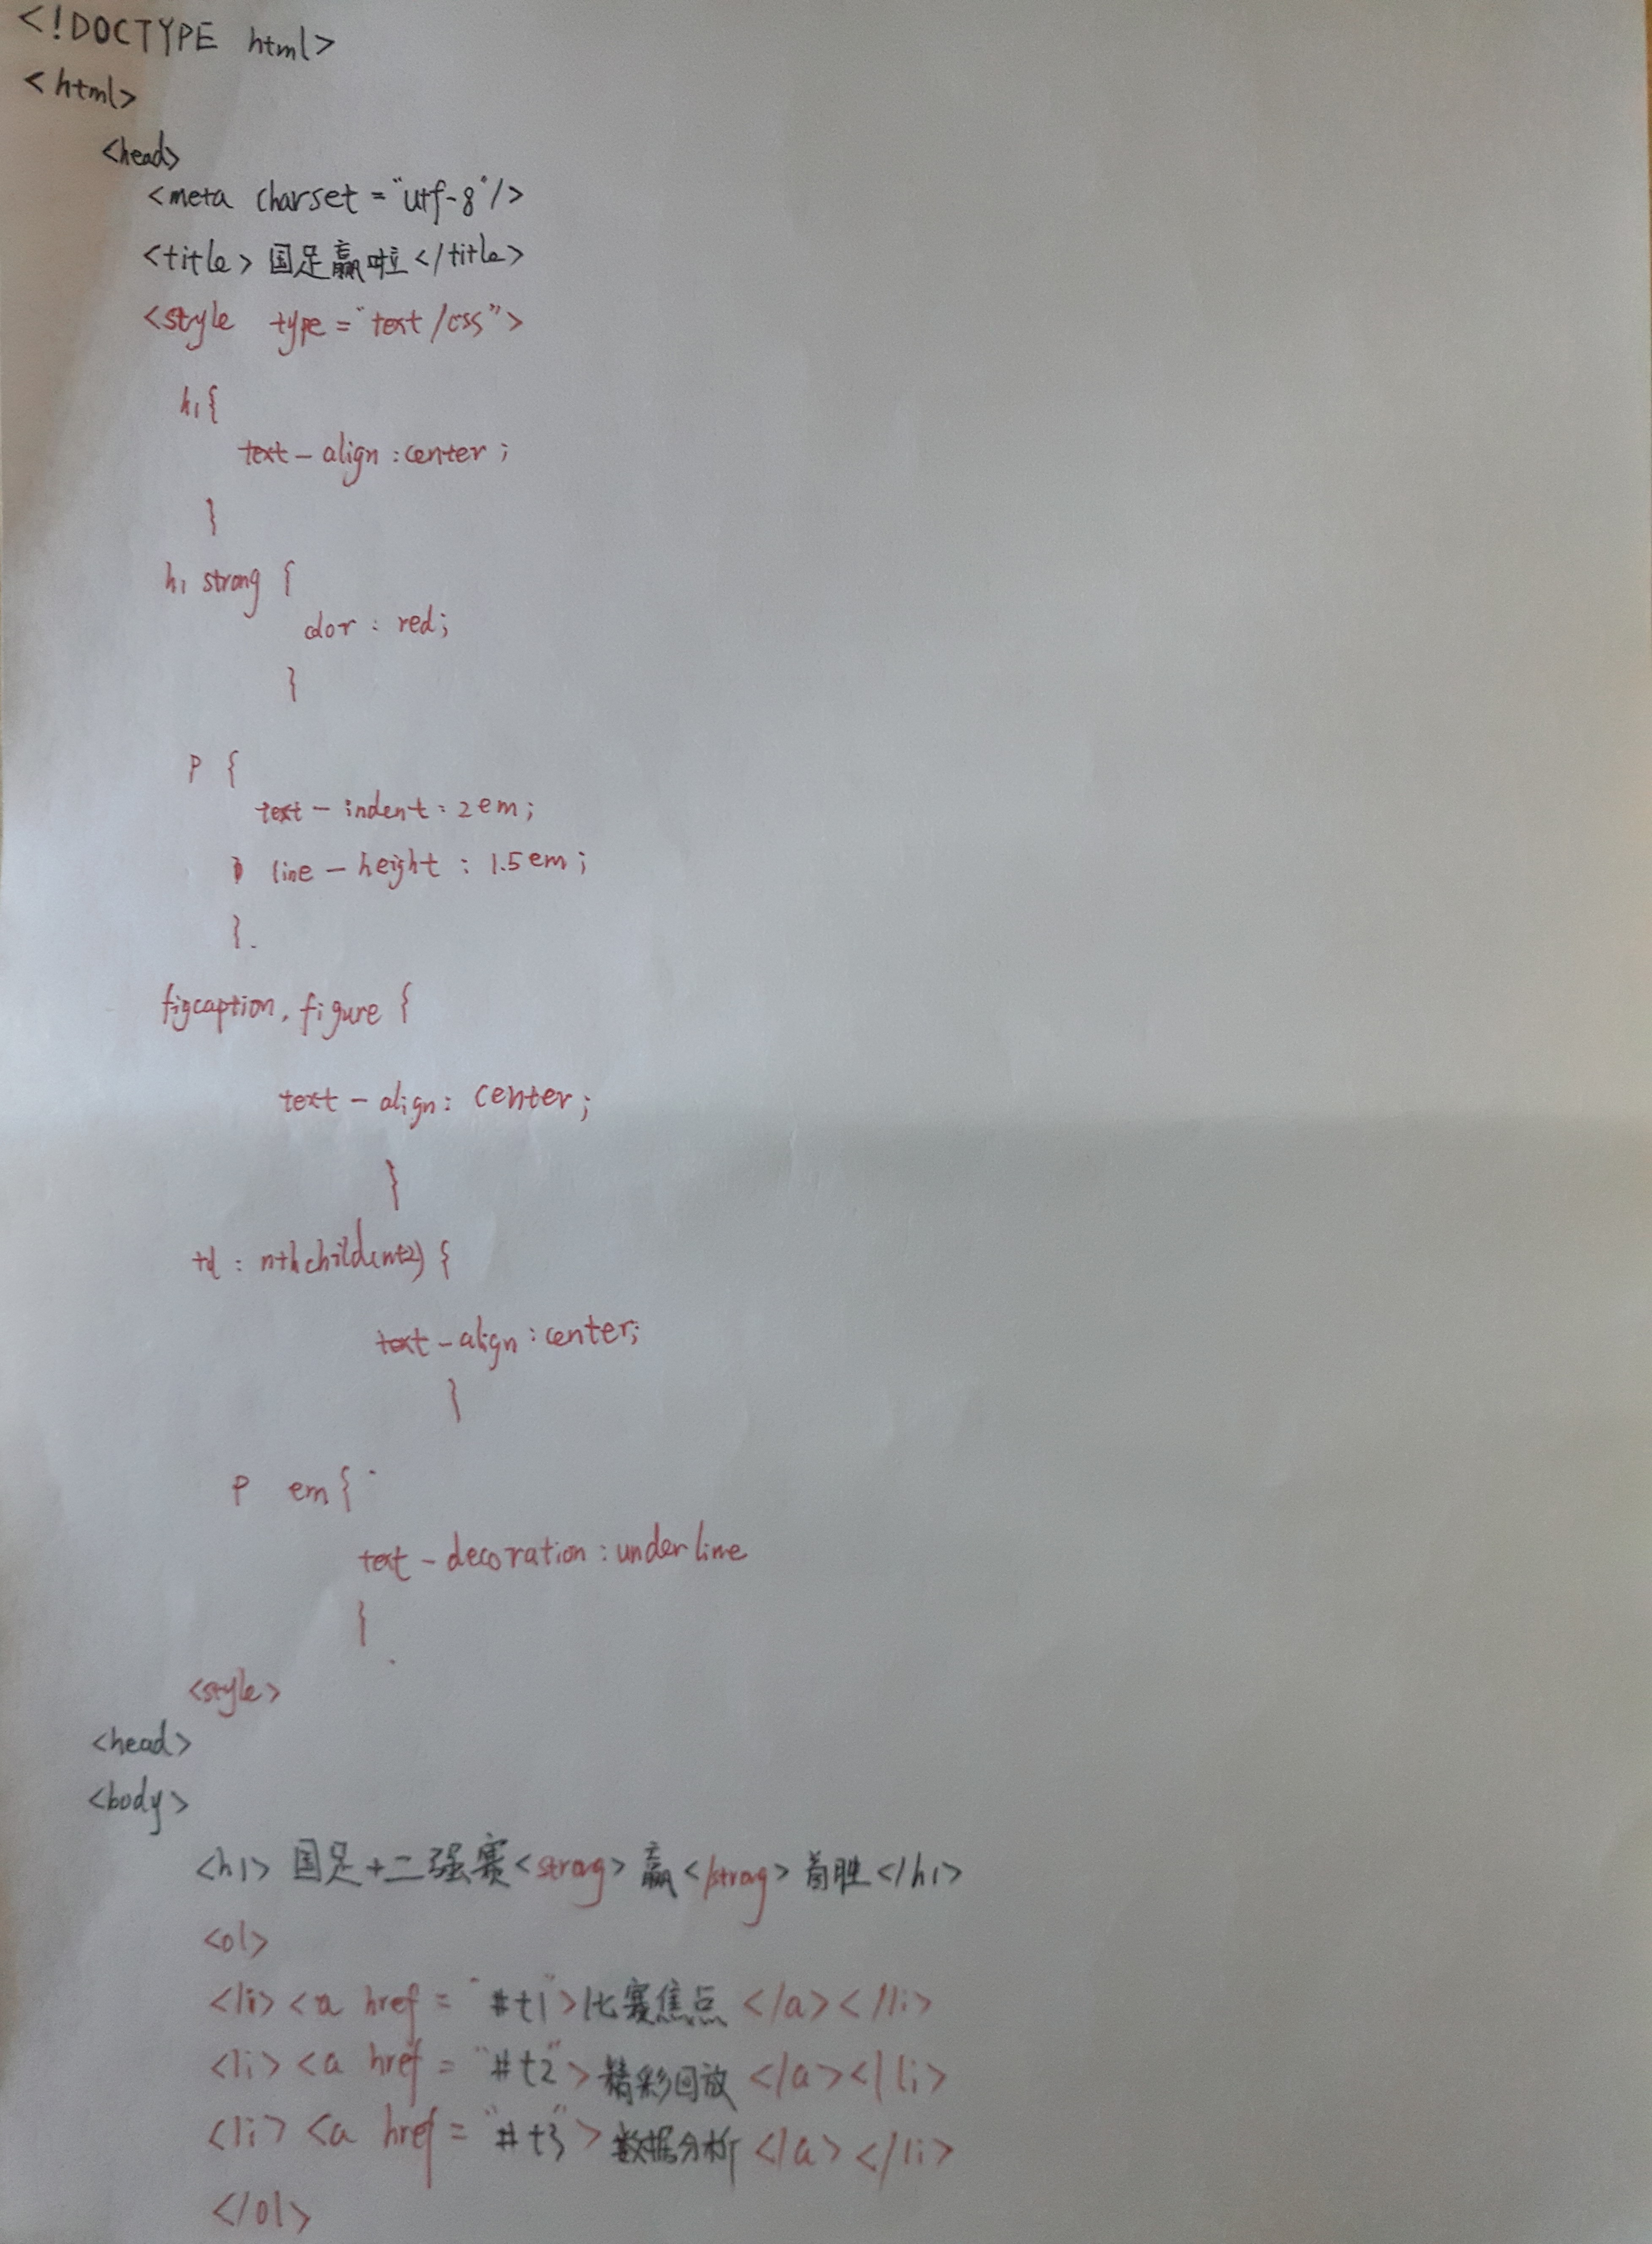 <!DOCTYPE html>
<html>
<head>
<meta charset="utf-8"/>
<title>国足赢啦</title>
<style type="text/css">
h1{
text-align:center;
}
h1 strong {
color: red;
}
P {
text-indent:2em;
line-height:1.5em;
}.
figcaption, figure {
text-align: center;
}
td: nthchild(n+2) {
text-align:center;
}
P em{
text-decoration:underline
}
<style>
<head>
<body>
<h1>国足十二强赛<strong>赢</strong>首胜</h1>
<ol>
</li><a href="#t1">比赛焦点</a></li>
<li><a href="#t2">精彩回放</a></li>
<li><a href="#t3">数据分析</a></li>
</ol>